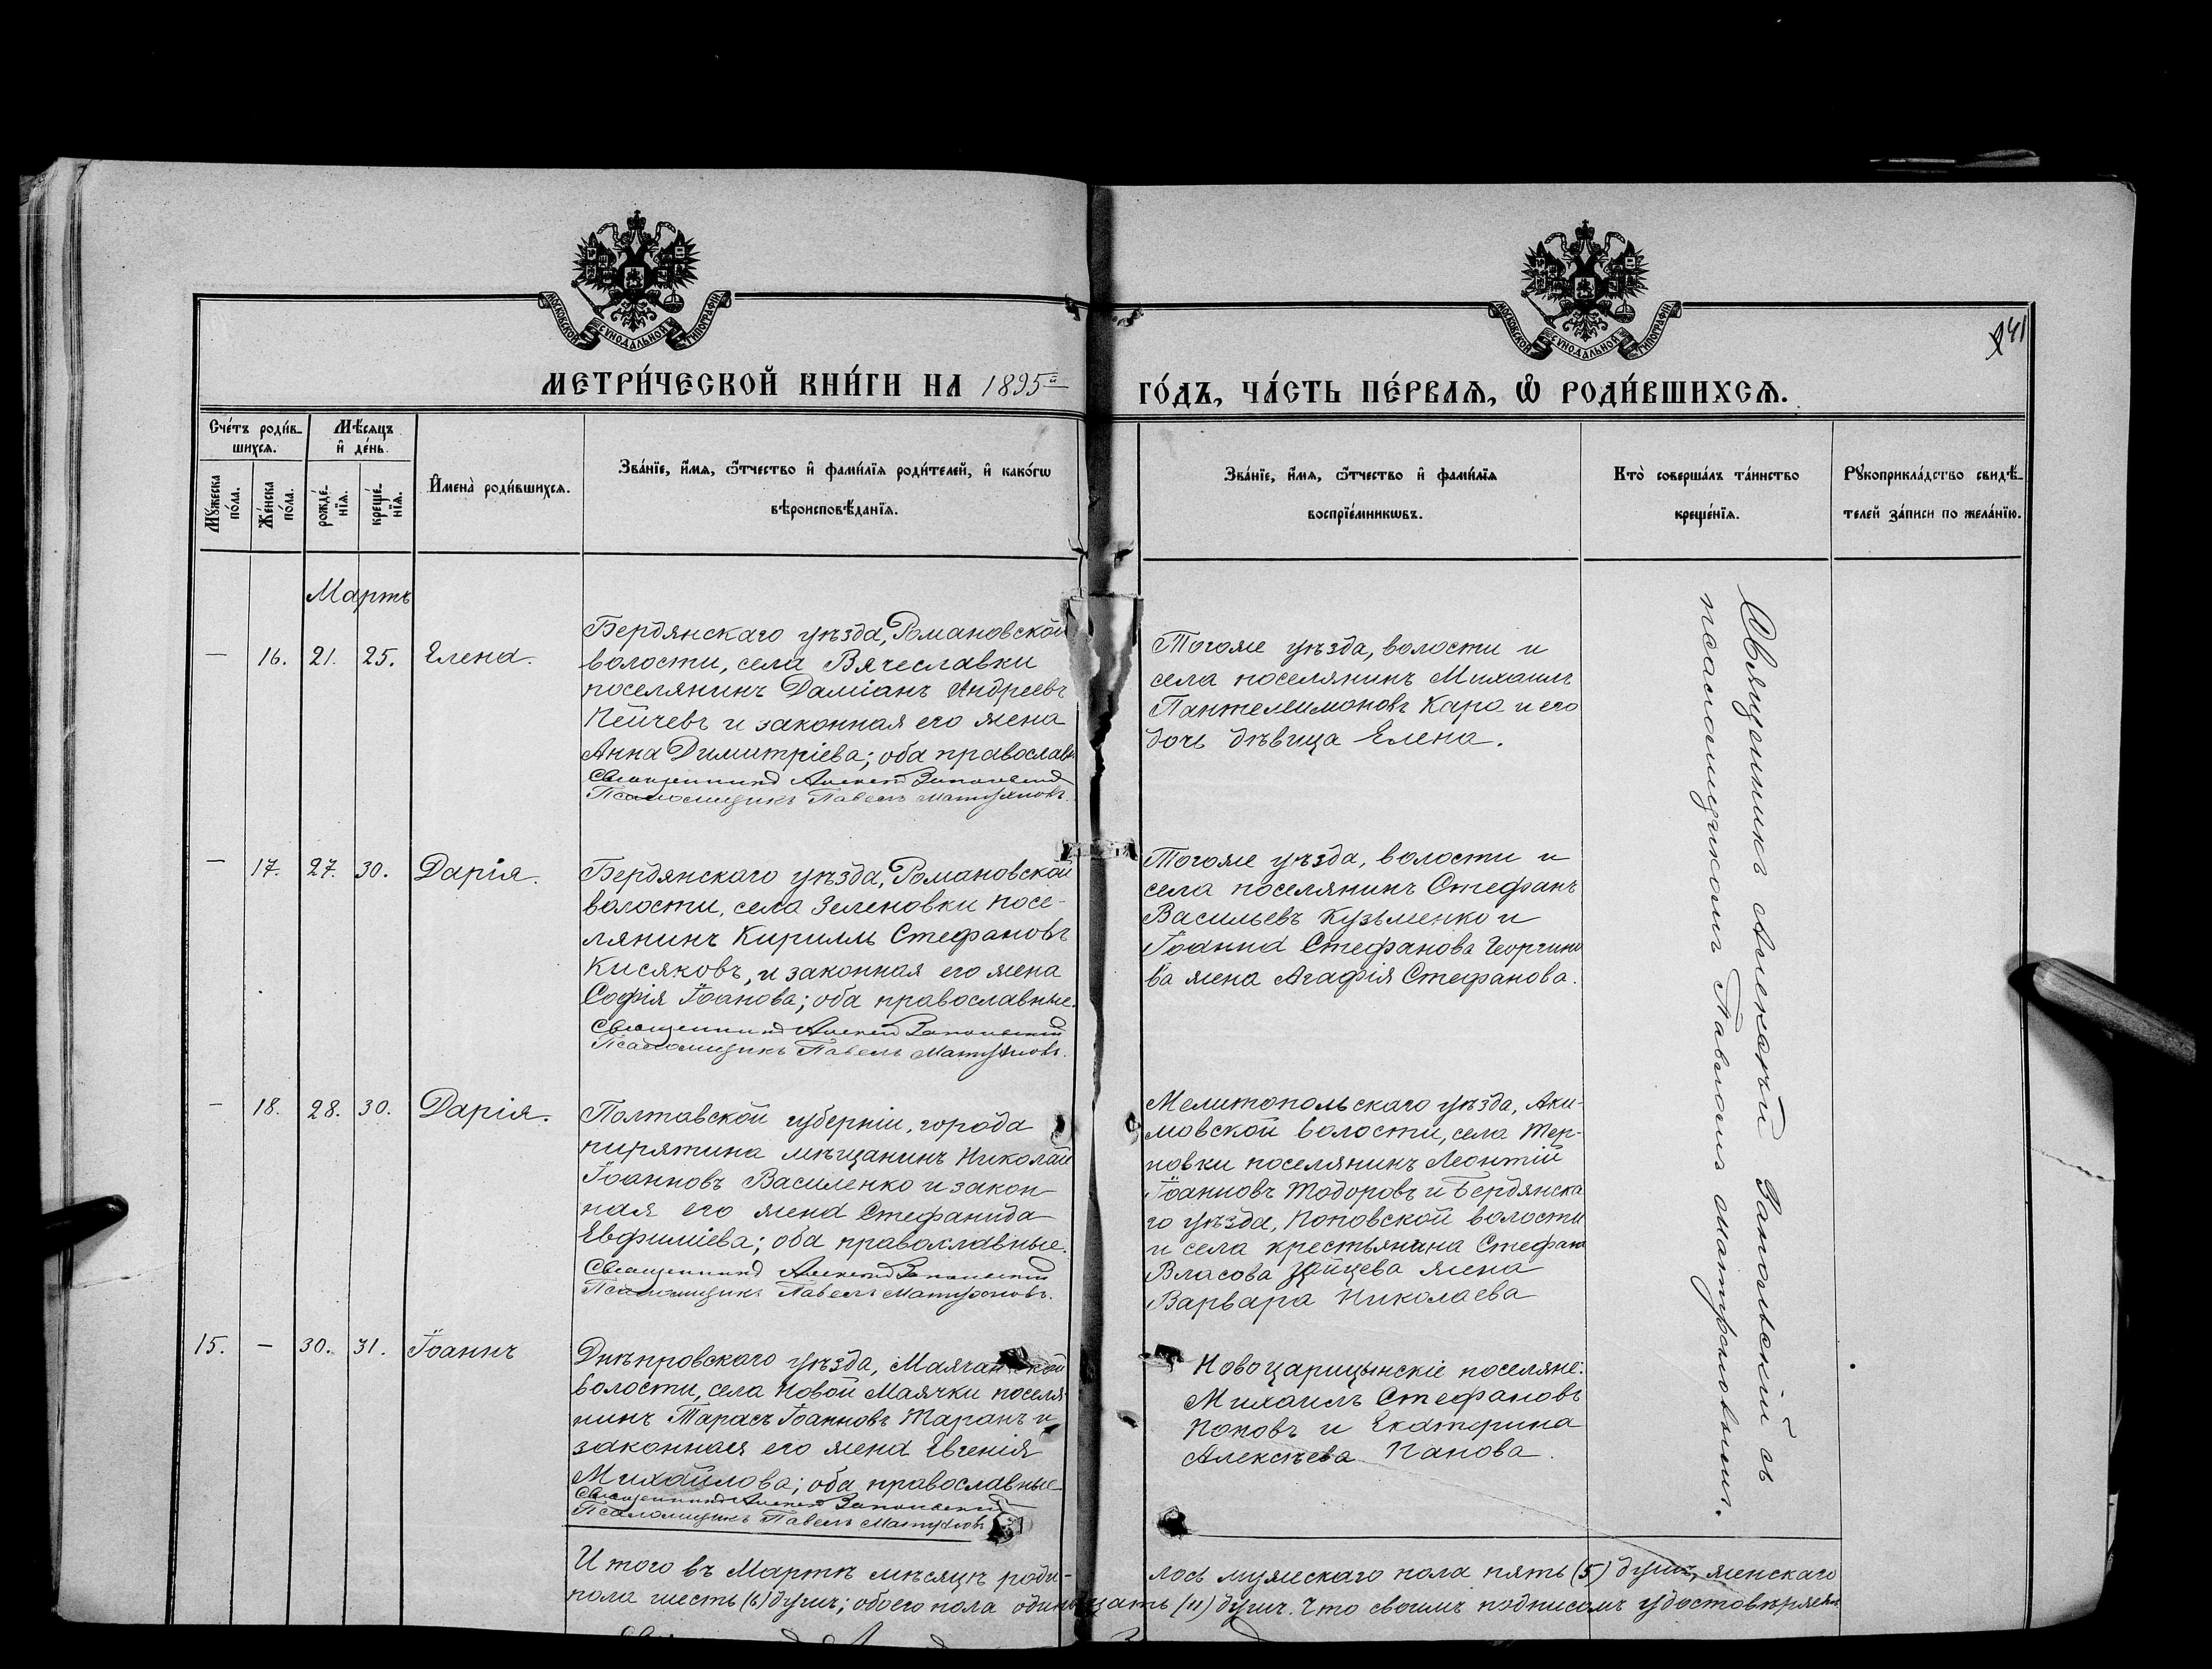 МОСКОВСКОЙ СѴНОДАЛЬНОЙ ТИПОГРАФІИ
МОСКОВСКОЙ СѴНОДАЛЬНОЙ ТИПОГРАФІИ
241
МЕТРИ́ЧЕСКОЙ КНИ́ГИ НА 1895й
ГО́ДЪ, ЧА́СТЬ ПЕ́РВАѦ, Ѡ҆ РОДИ́ВШИХСѦ.
Сче́тъ роди́в-
шихсѧ.
Мꙋ́жеска по́ла.
Же́нска по́ла.
Мѣ́сѧцъ
и҆ де́нь.
рожде́-нїѧ.
креще́-нїѧ.
И҆мена̀ роди́вшихсѧ.
Зва́нїе, и҆́мѧ, ѻ҆́тчество и҆ фами́лїѧ роди́телей, и҆ како́гѡ
вѣроисповѣ́данїѧ.
Зва́нїе, и҆́мѧ, ѻ҆́тчество и҆ фами́лїѧ
воспрїе́мникѡвъ.
Кто̀ соверша́лъ та́инство
креще́нїѧ.
Рꙋкоприкла́дство свидѣ́-
телей за́писи по жела́нїю.
Мартъ
— 16. 21. 25. Елена.
Бердянскаго уѣзда, Романовской
волости, села Вячеславки
поселянинъ Даміанъ Андреевъ
Пейчевъ и законная его жена
Анна Димитріева; оба православн.
Священникъ Алексѣй Запольскій
Псаломщикъ Павелъ
Тогоже уѣзда, волости и
села поселянинъ Михаилъ
Пантелеимоновъ Каро и его
дочь дѣвица Елена.
Священникъ Алексѣй Запольскій съ
псаломщикомъ Павломъ
— 17. 27. 30. Дарія.
Бердянскаго уѣзда, Романовской
волости, села Зеленовки посе-
лянинъ Кириллъ Стефановъ
Кисяковъ, и законная его жена
Софія Іоанова; оба православные.
Священникъ Алексѣй Запольскій
Псаломщикъ Павелъ
Тогоже уѣзда, волости и
села поселянинъ Стефанъ
Васильевъ Кузьменко и
Іоанна Стефанова Георгино
ва жена Агафія Стефанова.
— 18. 28. 30. Дарія.
Полтавской губерніи, города
пирятина мѣщанинъ Николай
Іоанновъ Василенко и закон-
ная его жена Стефанида
Евфиміева; оба православные.
Священникъ Алексѣй Запольскій
Псаломщикъ Павелъ
Мелитопольскаго уѣзда, Аки-
мовской волости, села Тер-
новки поселянинъ Леонтій
Іоанновъ Тодоровъ и Бердянска
го уѣзда, Поповской волости
и села крестьянина Стефана
Власова Зайцева жена
Варвара Николаева
15. — 30. 31. Іоаннъ
Днѣпровскаго уѣзда, Маячанской
волости, села Новой Маячки поселя
нинъ Тарасъ Іоанновъ Таранъ и
законная его жена Евгенія
Михайлова; оба православные
Священникъ Алексѣй Запольскій
Псаломщикъ Павелъ
Новоцарицынскіе поселяне:
Михаилъ Стефановъ
Поповъ и Екатерина
Алексѣева Панова.
Итого въ Мартѣ мѣсяцѣ роди-лось мужескаго пола пять (5) душъ, женскаго
пола шесть (6) душъ; обоего пола одинадцать (11) душъ. Что своимъ подписомъ удостовѣряемъ.